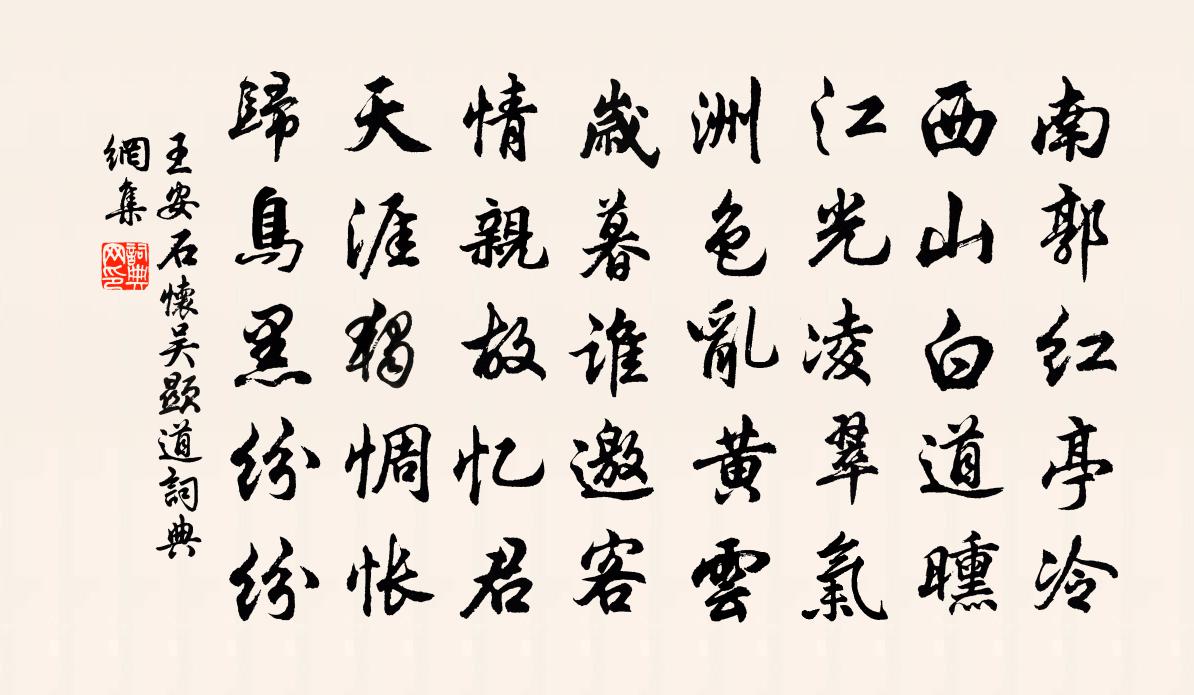 南郭红亭冷
西山白道曛
江光凌翠氣
洲色亂黄雲
歲暮谁邀客
情親故忆君
天涯獨惆怅
歸鳥黑纷纷
王安石懷吴顯道詞典
網集
詞典网印